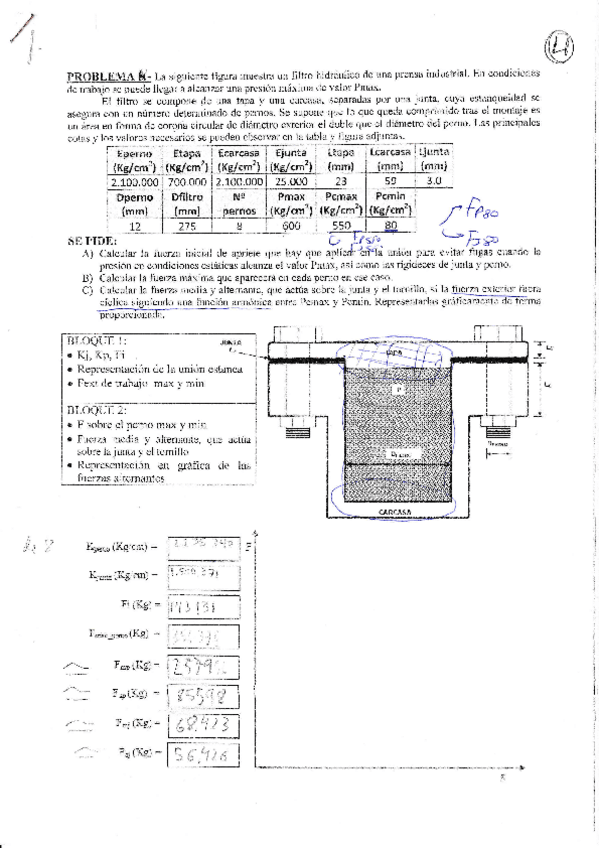 1.
4
PROBLEMA K.- La siguiente figura muestra un filtro hidráulico de una prensa industrial. En condiciones
de trabajo se puede llegar a alcanzar una presión máxima de valor Pmax.
El filtro se compone de una tapa y una carcasa, separadas por una junta, cuya estanqueidad se
asegura con un número determinado de pernos. Se supone que lo que queda comprimido tras el montaje es
un área en forma de corona circular de diámetro exterior el doble que el diámetro del perno. Las principales
cotas y los valores necesarios se pueden observar en la tabla y figura adjuntas.
Eperno Etapa Ecarcasa Ejunta Ltapa Lcarcasa Ljunta
(Kg/cm²) (Kg/cm²) (Kg/cm²) (Kg/cm²) (mm) (mm) (mm)
2.100.000 700.000 2.100.000 25.000 23 59 3.0
Dperno Dfiltro Nº Pmax Pcmax Pcmin
(mm) (mm) pernos (Kg/cm²) (Kg/cm²) (Kg/cm²)
12 275 8 600 550 80
FP80
FJ80
SE PIDE:
A) Calcular la fuerza inicial de apriete que hay que aplicar en la unión para evitar fugas cuando la
presión en condiciones estáticas alcanza el valor Pmax, así como las rigideces de junta y perno.
B) Calcular la fuerza máxima que aparecerá en cada perno en ese caso.
C) Calcular la fuerza media y alternante, que actúa sobre la junta y el tornillo, si la fuerza exterior fuera
cíclica siguiendo una función armónica entre Pcmax y Pcmin. Representarlas gráficamente de forma
proporcionada.
BLOQUE 1:
• Kj, Kp, Fi
• Representación de la unión estanca
• Fext de trabajo max y min
BLOQUE 2:
• F sobre el perno max y min
• Fuerza media y alternante, que actúa
sobre la junta y el tornillo
• Representación en gráfica de las
fuerzas alternantes
JUNTA
TAPA
P
CARCASA
Kperno (Kg/cm) =
Kjunta (Kg/cm) =
Fi (Kg) =
(Kg) =
Fmp (Kg) =
Fap (Kg) =
85598
Fmj (Kg) =
68.423
Faj (Kg) =
56,426
F